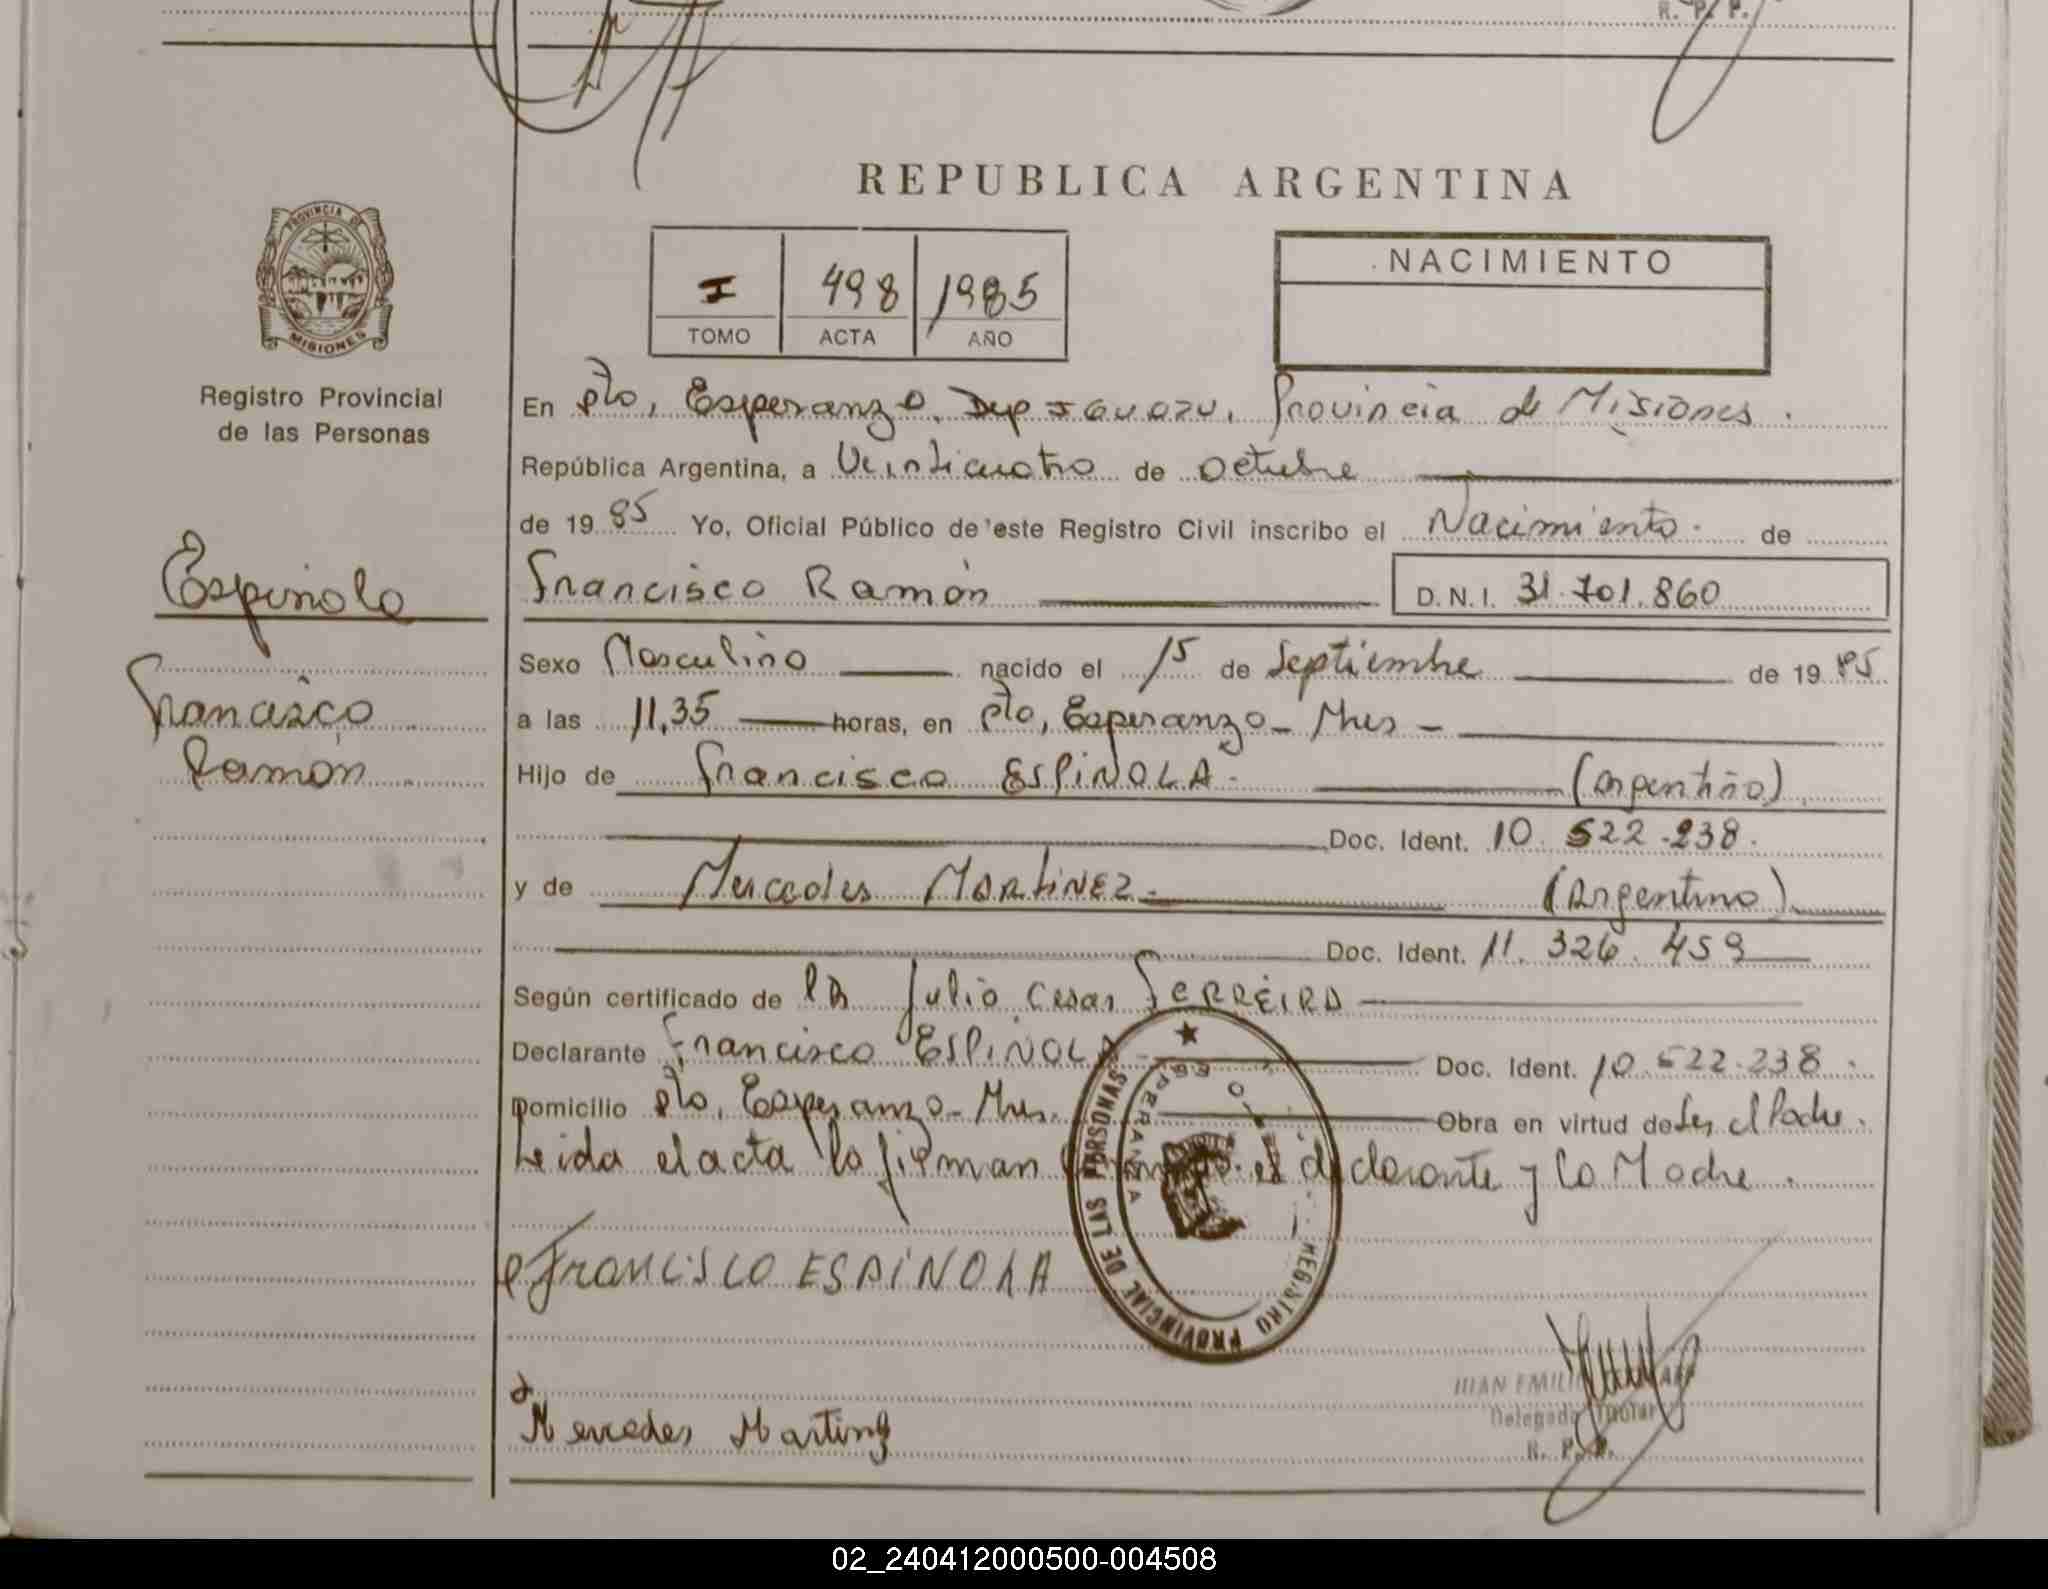 R. P. P.
REPUBLICA ARGENTINA
PROVINCIA DE
MISIONES
Registro Provincial
de las Personas
I 498 1985
TOMO ACTA AÑO
NACIMIENTO
En Pto, Esperanza, Dep Iguazu, Provincia de Misiones.
República Argentina, a Veinticuatro de octubre
de 1985 Yo, Oficial Público de este Registro Civil inscribo el Nacimiento. de
Espinola
Francisco Ramón D.N.I. 31.701.860
Francisco
Ramón
Sexo Masculino nacido el 15 de Septiembre de 1985
a las 11,35 horas, en Pto, Esperanza - Mnes -
Hijo de Francisco ESPINOLA - (argentino)
Doc. Ident. 10.522.238.
y de Mercedes MARTINEZ - (argentina)
Doc. Ident. 11.326.459
Según certificado de Julio Cesar FERREIRA
Declarante Francisco ESPINOLA - Doc. Ident. 10.522.238.
Domicilio Pto, Esperanza - Mnes. Obra en virtud de Ser el Padre.
Leida el acta la firman el declarante y la Madre.
REGISTRO PROVINCIAL DE LAS PERSONAS
ESPERANZA
FRANCISCO ESPINOLA
JUAN EMILIO
Delegado Titular
R. P. P.
Mercedes Martinez
02_240412000500-004508